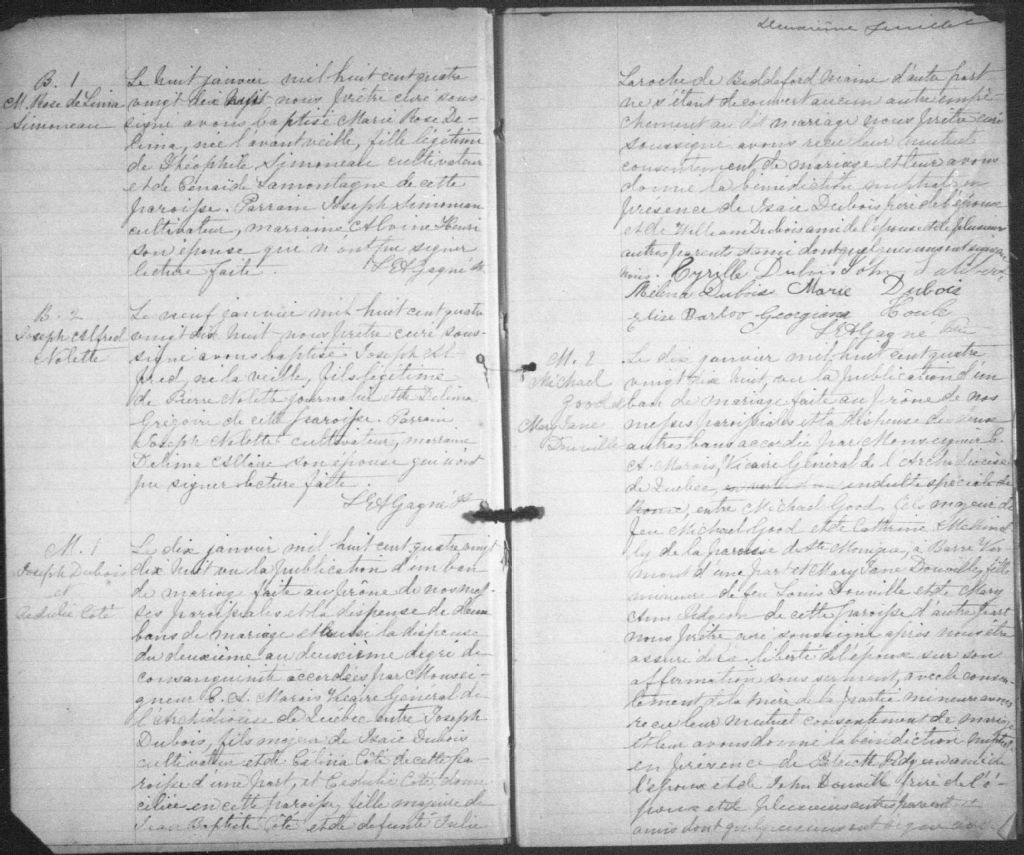 B. 1
M. Rose de Lima
Simoneau
Le huit janvier mil huit cent quatre
vingt dix huit nous prêtre curé sous-
signé avons baptisé Marie Rose De-
lima, née l'avant veille, fille légitime
de Théophile Simoneau cultivateur
et de Lamontagne de cette
paroisse. Parrain Joseph Simoneau
cultivateur, marraine Alvine Henri
son épouse qui n'ont pu signer
lecture faite.
L E A Gagné Ptr
B. 2
Joseph Alfred
Nolette
Le neuf janvier mil huit cent quatre
vingt dix huit nous prêtre curé sous-
signé avons baptisé Joseph Al-
fred, né la veille, fils légitime
de Pierre Nolette journalier et de Delima
Grégoire de cette paroisse. Parrain
Joseph Nolette cultivateur, marraine
Delima Allaire son épouse qui n'ont
pu signer lecture faite.
L E A Gagné Ptr
M. 1
Joseph Dubois
et
Cédulie Coté
Le dix janvier mil huit cent quatre vingt
dix huit vu la publication d'un ban
de mariage faite au prône de nos mes-
ses paroissiales et la dispense de deux
bans de mariage et aussi la dispense
du deuxième au deuxième degré de
consanguinité accordées par Monsei-
gneur C. A. Marois Vicaire Général de
l'Archidiocèse de Québec entre Joseph
Dubois, fils majeur de Isaie Dubois
cultivateur et de Célina Coté de cette pa-
roisse d'une part, et Cédulie Coté domi-
ciliée en cette paroisse, fille majeure de
Jean Baptiste Coté et de défunte Julie
Deuxième feuillet
Laroche de Biddeford Maine d'autre part
ne s'étant découvert aucun autre empê-
chement au dit mariage nous prêtre curé
soussigné avons reçu leur mutuel
consentement de mariage et leur avons
donné la bénédiction nuptiale en
présence de Isaie Dubois père de l'époux
et de William Dubois ami de l'épouse et de plusieurs
autres parents et amis dont quelques uns ont signé avec
nous. Cyrille Dubois John
Mélina Dubois Marie Dubois
Elise Barloo Georgiana Houle
L E A Gagné Ptr
M. 2
Michael
Good
Mary Jane
Douville
Le dix janvier mil huit cent quatre
vingt dix huit, vu la publication d'un
ban de mariage faite au prône de nos
messes paroissiales et la dispense de deux
autres bans accordée par Monseigneur C.
A. Marois, Vicaire Général de l'Archidiocèse
de Québec, indulte spécial de
Rome, entre Michael Good fils majeur de
feu Michael Good et de Catherine
de la paroisse de Ste Monique, à Barre Ver-
mont d'une part et Mary Jane Douville, fille
mineure de feu Louis Douville et de Mary
Ann Pidgeon de cette paroisse d'autre part
nous prêtre curé soussigné après nous être
assuré de la liberté de l'époux sur son
affirmation sous serment, avec le consen-
tement de la mère de la partie mineure avons
reçu leur mutuel consentement de mariage
et leur avons donné la bénédiction nuptiale
en présence de Pidgeon ami de
l'époux et de John Douville frère de l'é-
pouse et de plusieurs autres parents et
amis dont quelques uns ont signé avec